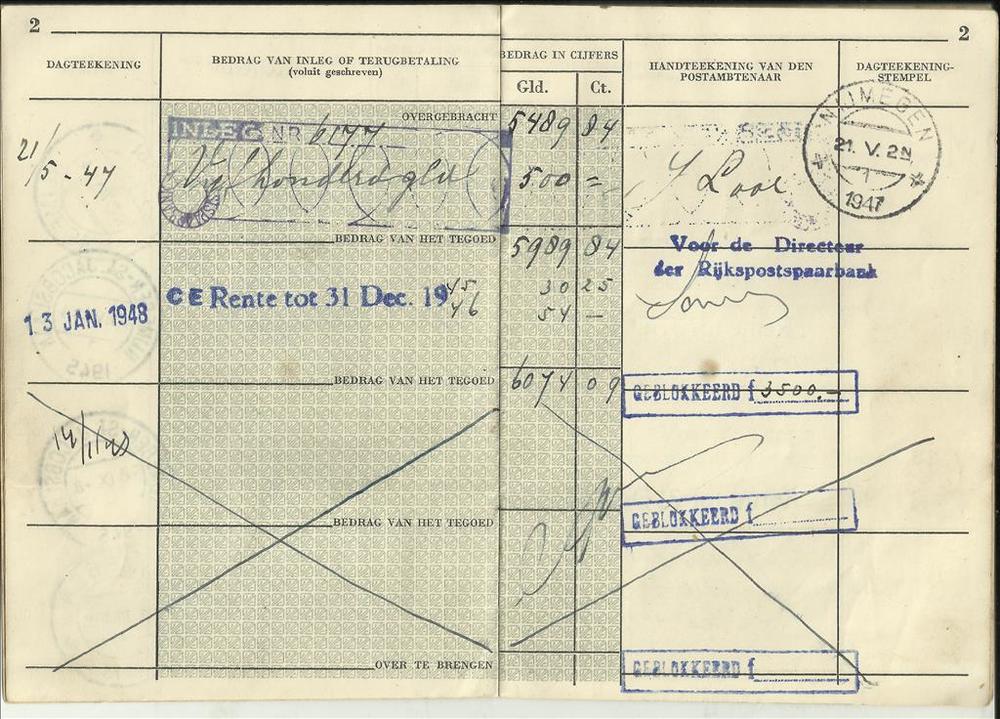 2
2
DAGTEEKENING
BEDRAG VAN INLEG OF TERUGBETALING
(voluit geschreven)
BEDRAG IN CIJFERS
Gld. Ct.
HANDTEEKENING VAN DEN
POSTAMBTENAAR
DAGTEEKENING-
STEMPEL
OVERGEBRACHT 5489 84
INLEG NR 6177
21/5-47
500 =
NIJMEGEN
21. V. 2N
1947
BEDRAG VAN HET TEGOED 5989 84
Voor de Directeur
der Rijkspostspaarbank
13 JAN. 1948
CE Rente tot 31 Dec. 19 45 30 25
46 54 —
BEDRAG VAN HET TEGOED 6074 09
GEBLOKKEERD f 3500.—
BEDRAG VAN HET TEGOED
GEBLOKKEERD f
OVER TE BRENGEN
GEBLOKKEERD f